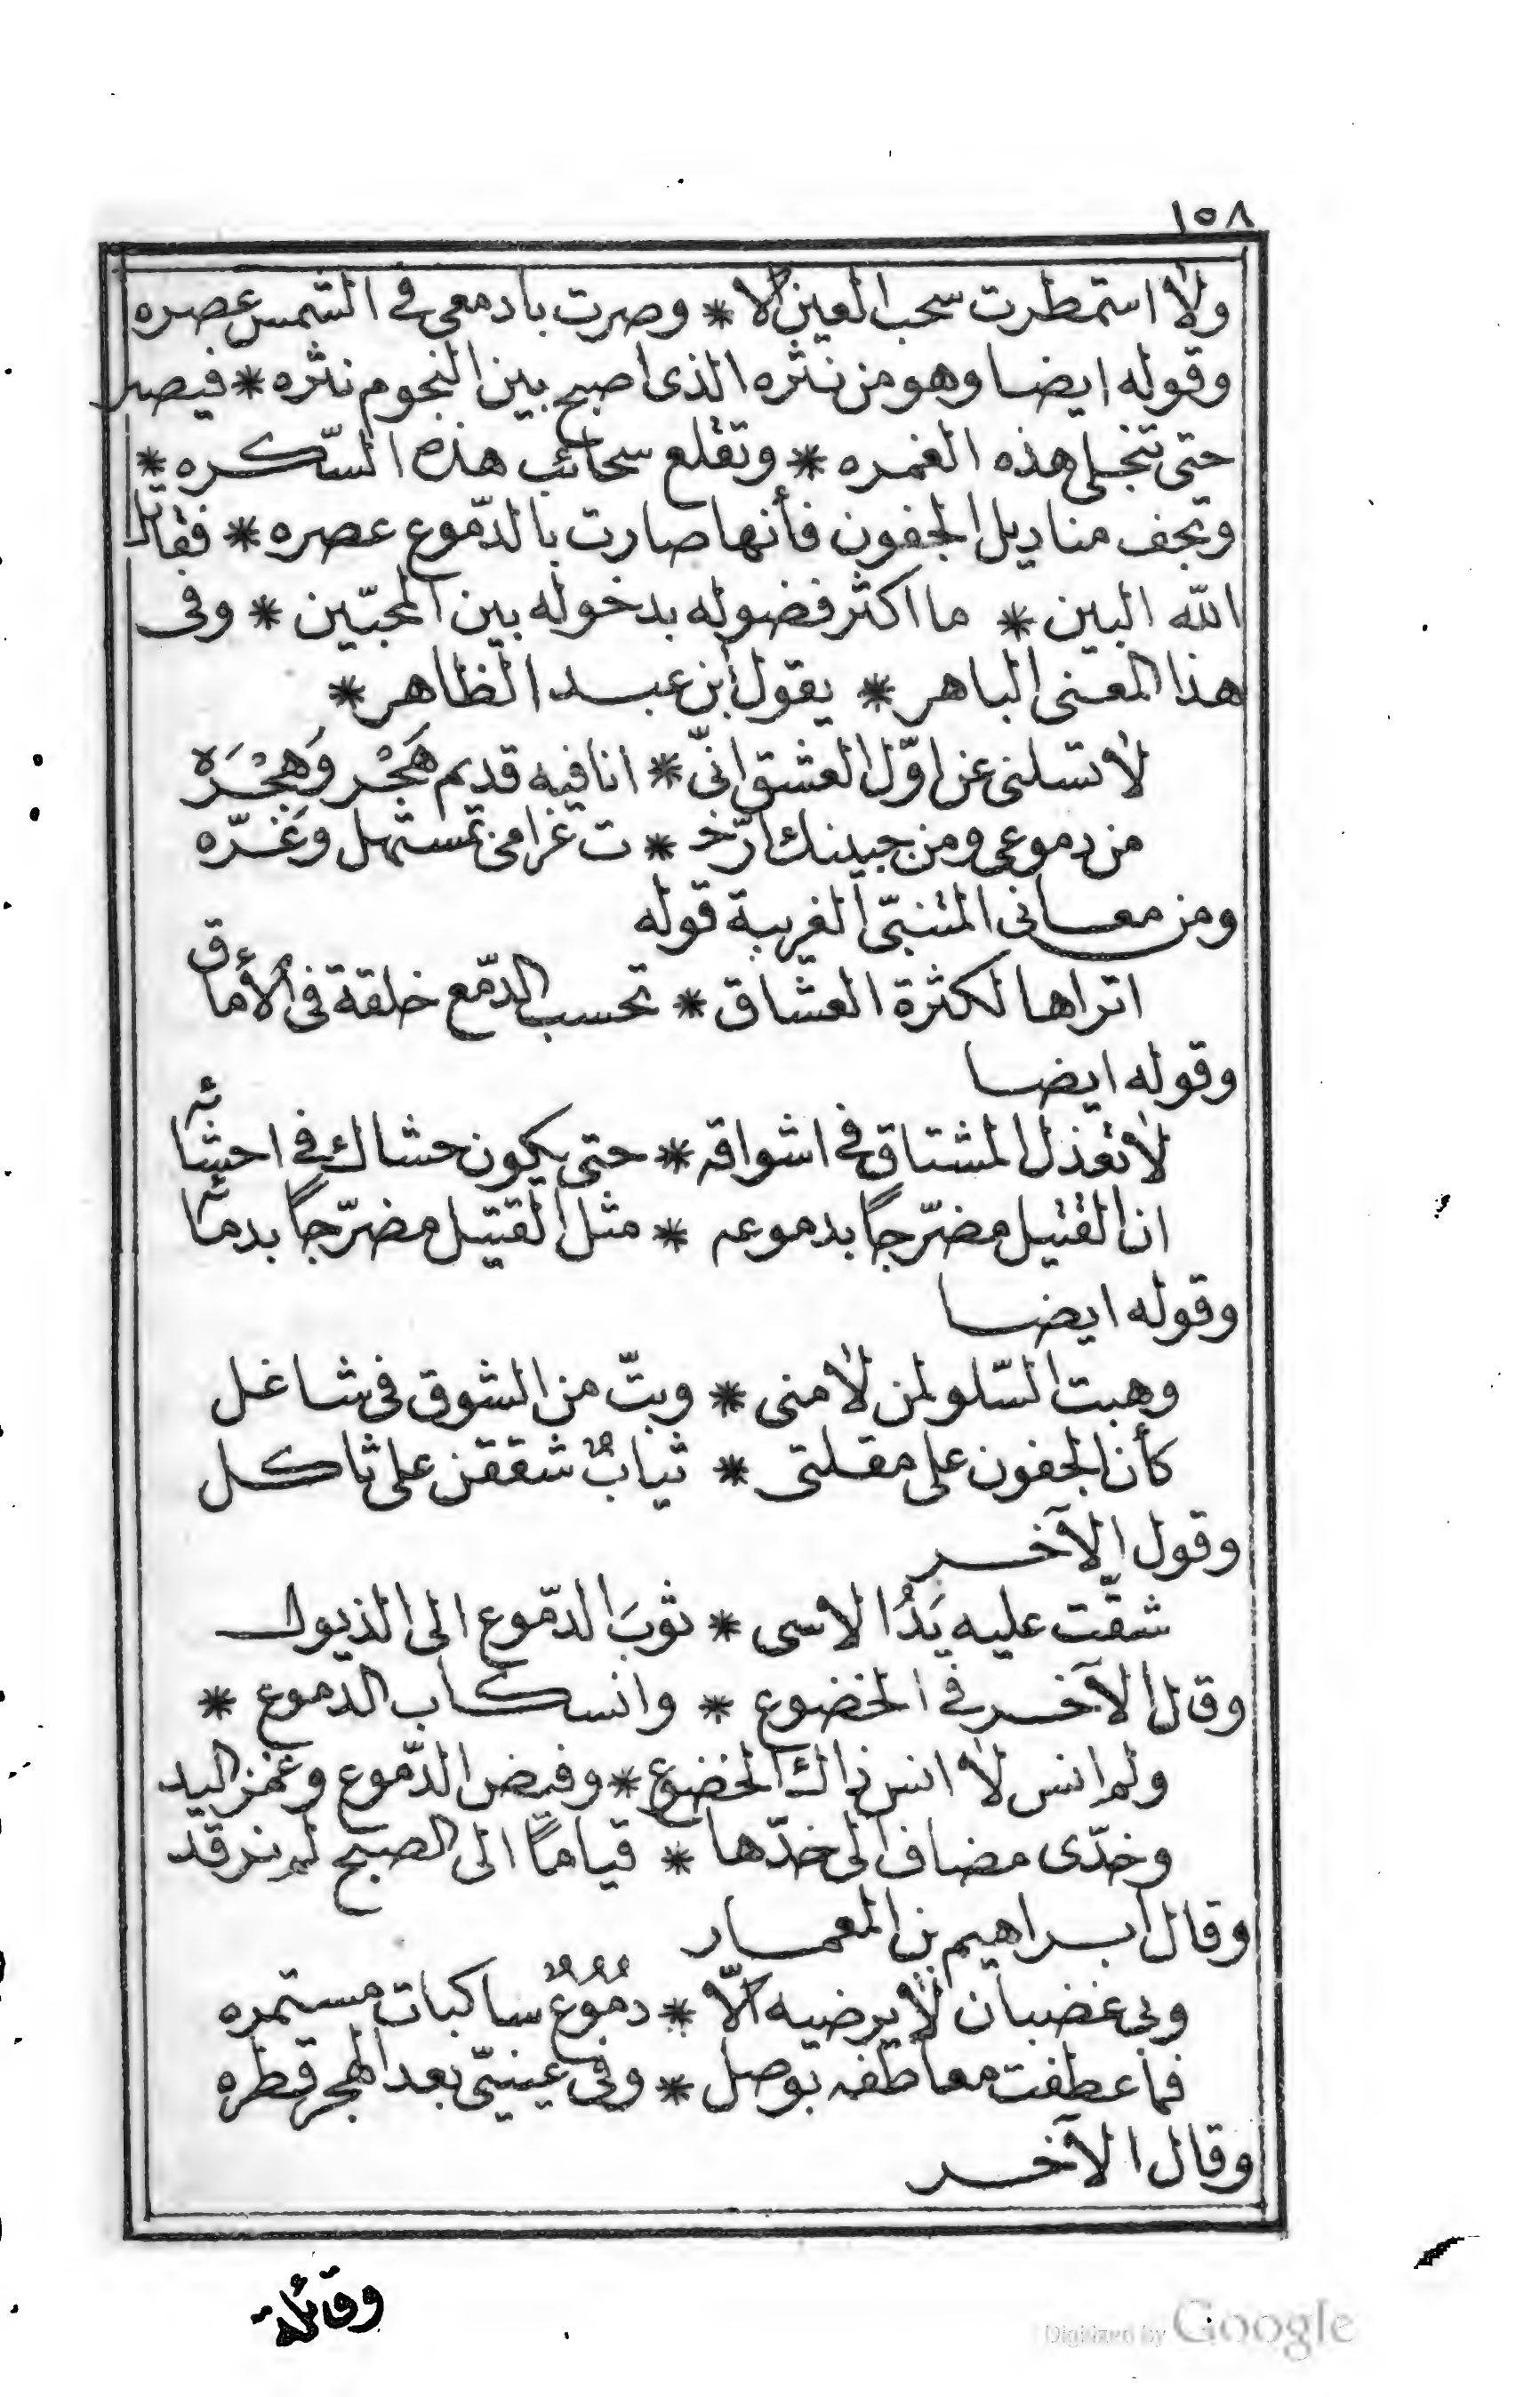 ١٥٨
ولا استمطرت سحب العين الا * وصرت بادمعى فى الشمس عصره
وقوله ايضا وهو من نثره الذى اصبح بين النجوم نثره * فيصبر
حتى تنجلى هذه الغمره * وتقلع سحائب هذه السّكره *
وتجف مناديل الجفون فأنها صارت بالدّموع عصره * فقاتل
الله البين * ما اكثر فضوله بدخوله بين المحبّين * وفى
هذا المعنى الباهر * يقول ابن عبد الظاهر *
لا تسلنى عن اوّل العشق انّى * انا فيه قديم هَجْر وَهِجْرَة
من دموعى ومن جبينك ارّخـ * ـت غرامى بمستهل وغرّه
ومن معانى المتنبّى الغريبة قوله
اتراها لكثرة العشاق * تحسب الدّمع خلقة فى الأماق
وقوله ايضا
لا تعذل المشتاق فى اشواقه * حتى يكون حشاك فى احشائه
ان القتيل مضرّجاً بدموعه * مثل القتيل مضرّجاً بدمائه
وقوله ايضا
وهبت السّلو لمن لامنى * وبتّ من الشوق فى شاغل
كأن الجفون على مقلتى * ثيابٌ شققن على ثاكل
وقول الآخر
شقّت عليه يَدُ الاسى * ثوبَ الدّموع الى الذيول
وقال الآخر فى الخضوع * وانسكاب الدّموع *
ولم انس لا انس ذاك الخضوع * وفيض الدّموع وغمز اليد
وخدّى مضاف الى خدّها * قياماً الى الصبح لم نرقد
وقال ابراهيم بن المعمار
وبى غضبان لا يرضيه الّا * دمُوعٌ ساكبات مستمره
فما عطفت معاطفه بوصل * وفى عينيّى بعد الهجر قطره
وقال الآخر
وقائلة
Digitized by Google